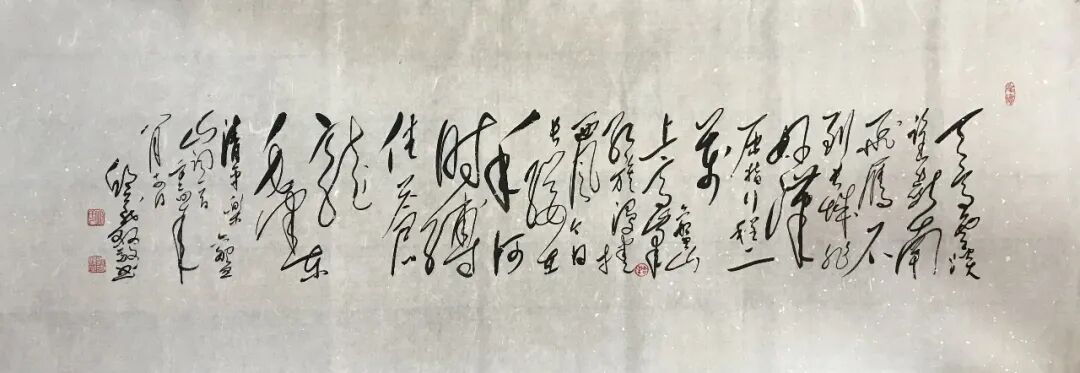 天高雲淡
望断南
飛雁不
到长城非
好漢
屈指行程二
萬
六盤山
上高峰
红旗漫捲
西風今日
长缨在
手何
时缚
住苍
龙
毛泽东
清平樂六盤
山词一首
年
八月